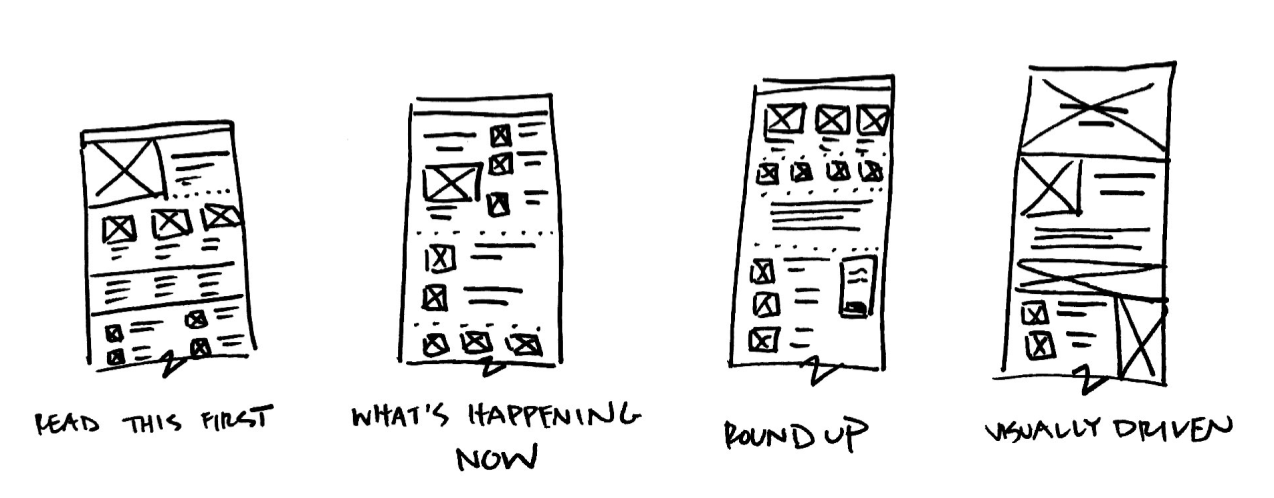 READ THIS FIRST
WHAT'S HAPPENING
NOW
ROUND UP
VISUALLY DRIVEN